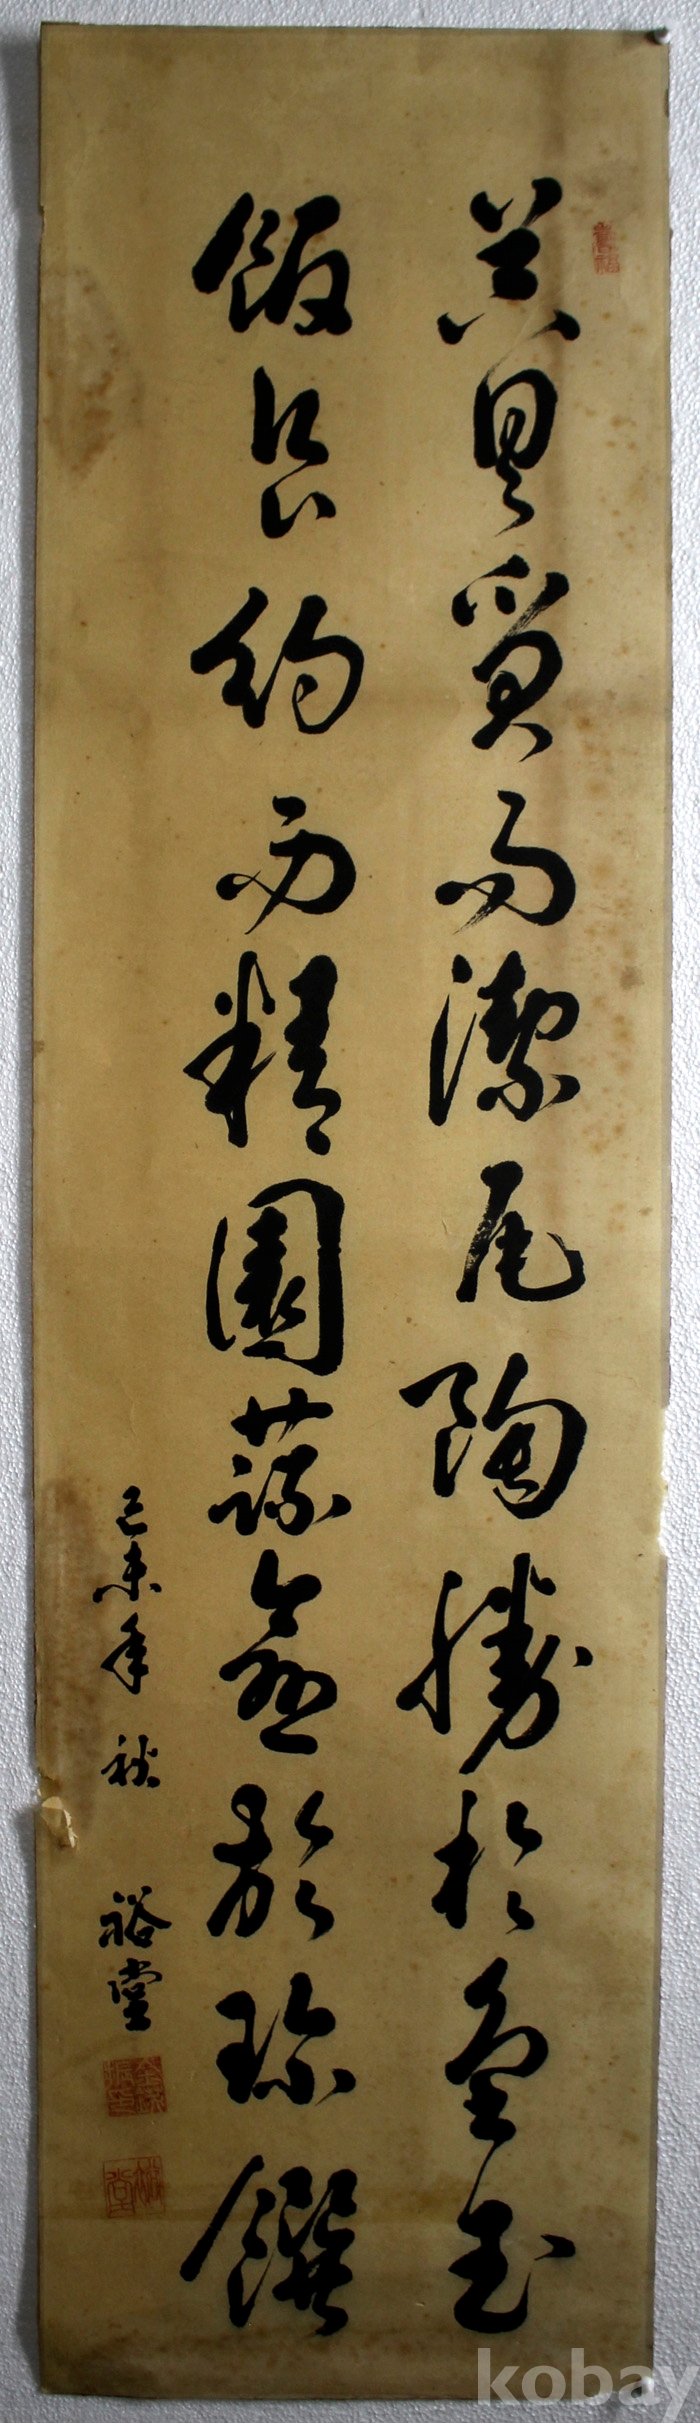 其器質而潔瓦陶勝於金玉
飯食約而精園蔬愈於珍饌
己未年 秋 裕堂
kobay